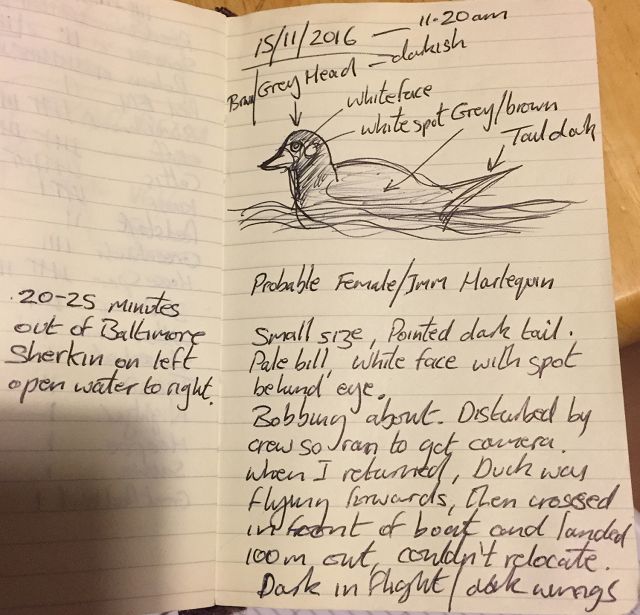 15/11/2016 — 11.20am
Brown/Grey Head — darkish
white face
white spot Grey/brown
Tail dark
Probable Female/Imm Harlequin
20-25 minutes
out of Baltimore
Sherkin on left
open water to right.
Small size, Pointed dark tail.
Pale bill, White face with spot
behind eye.
Bobbing about. Disturbed by
crew so ran to get camera.
when I returned, Duck was
flying forwards, then crossed
in front of boat and landed
100m out, couldn't relocate.
Dark in flight / dark wings